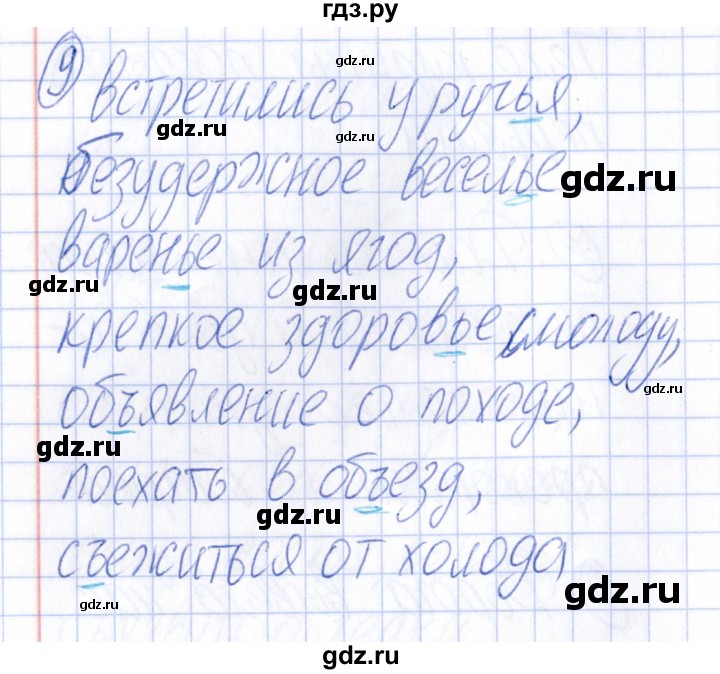 гдз.ру
gdz.ru
9 встретились у ручья,
gdz.ru
gdz.ru
безудержное веселье
gdz.ru
варенье из ягод,
gdz.ru
gdz.ru
крепкое здоровье смолоду,
gdz.ru
объявление о походе,
gdz.ru
поехать в объезд,
gdz.ru
съежиться от холода
gdz.ru
gdz.ru
gdz.ru